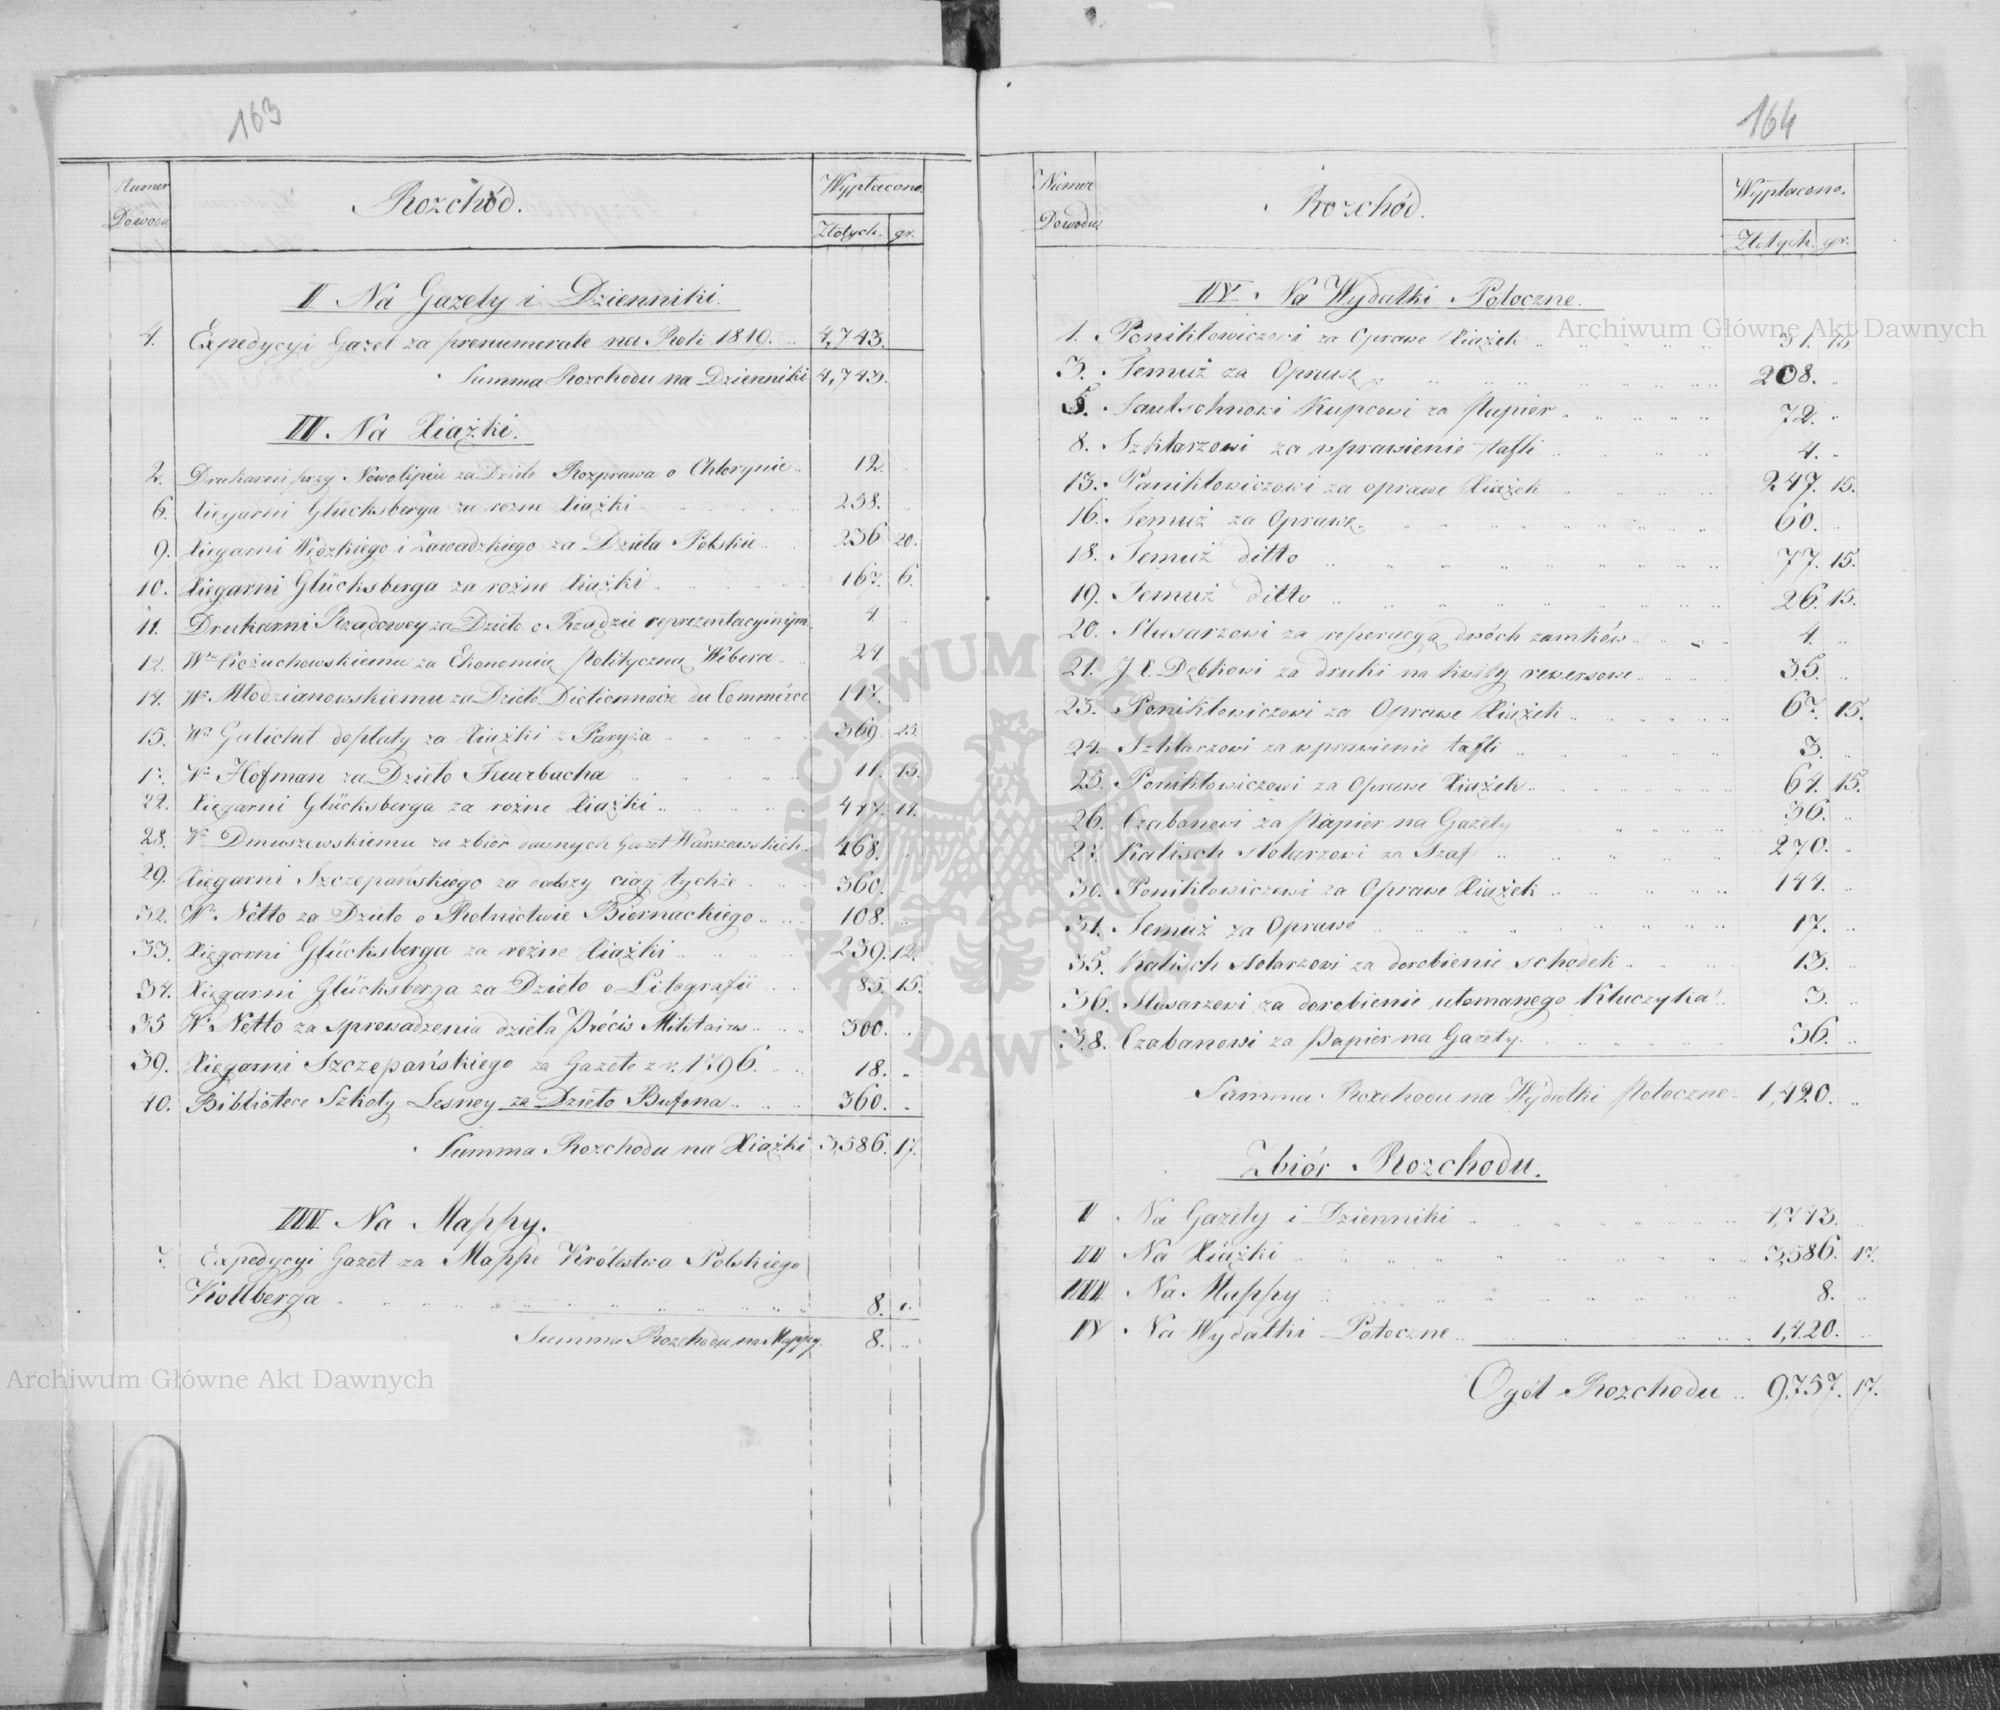 163
Numer Dowodu
Rozchód.
Wypłacono.
Złotych. gr.
I Na Gazety i Dzienniki.
4. Expedycyi Gazet za prenumerate na Rok 1819. 4,743.
Summa Rozchodu na Dzienniki 4,743.
II. Na Xiążki.
2. Drukarni przy Nowolipiu za Dzieło Rozprawa o Chlorynie 12.
6. Xięgarni Glücksberga za rozne Xiażki 258.
9. Xięgarni Węckiego i Zawadzkiego za Dzieła Polskie 236 20.
10. Xięgarni Glücksberga za rożne Xiażki 167. 6.
11. Drukarni Rządowey za Dzieło o Rządzie reprezentacyinym 4.
12. Wu Kożuchowskiemu za Ekonomią polityczną Webera 24
14. Wu Młodzianowskiemu za Dzieło Dictionnaire du Commérce 117.
15. Wu Galichet dopłaty za Xiażki z Paryża 369. 23.
17. Wu Hofman za Dzieło Feuerbacha 11. 15.
22. Xięgarni Glücksberga za rożne Xiażki 447. 14.
28. Wu Dmuszewskiemu za zbiór dawnych Gazet Warszawskich 468.
29. Xięgarni Szczepańskiego za dalszy ciąg tychże 360.
32. Wu Netto za Dzieło o Rolnictwie Biernackiego 108.
33. Xięgarni Glücksberga za rożne Xiażki 239. 12.
34. Xięgarni Glücksberga za Dzieło o Litografii 85. 15.
35 Wu Netto za sprowadzenia dzieła Précis Militaires 300.
39. Xięgarni Szczepańskiego za Gazete z r. 1796. 18.
40. Bibliotece Szkoły Lesney za Dzieło Bufona 360.
Summa Rozchodu na Xiążki 3,586. 17.
III Na Mappy.
7. Expedycyi Gazet za Mappe Królestwa Polskiego
Kollberga 8.
Summa Rozchodu na Mappy. 8.
164
Numer Dowodu
Rozchód.
Wypłacono.
Złotych. gr.
IV. Na Wydatki Potoczne.
1. Ponikłowiczowi za Oprawe Xiażek 51. 15
3. Temuż za Oprawę 208.
5. Sautschnowi Kupcowi za Papier 72.
8. Szklarzowi za wprawienie tafli 4.
13. Panikłowiczowi za oprawe Xiażek 247. 15.
16. Temuż za Oprawę 60.
18. Temuż ditto 77. 15.
19. Temuż ditto 26. 15.
20. Slusarzowi za reperacyą dwóch zamków 4.
21. J. X. Dębkowi za druki na kwity rewersowe 35.
23. Ponikłowiczowi za Oprawe Xiażek 67. 15.
24. Szklarzowi za wprawienie tafli 3.
25. Ponikłowiczowi za Oprawe Xiażek 64. 15.
26. Czabanowi za Papier na Gazety 36.
27. Kalisch stolarzowi za Szafe 270.
30. Ponikłowiczowi za Oprawe Xiażek 144.
31. Temuż za Oprawe 17.
35. Kalisch stolarzowi za dorobienie schodek 13.
36. Slusarzowi za dorobienie ułomanego Kluczyka 3.
38. Czabanowi za Papier na Gazety. 36.
Summa Rozchodu na Wydatki Potoczne 1,420.
Zbiór Rozchodu.
I Na Gazety i Dzienniki 4,743.
II Na Xiażki 3,586. 17.
III Na Mappy 8.
IV Na Wydatki Potoczne 1,420.
Ogół Rozchodu 9,757. 17.
Archiwum Główne Akt Dawnych
Archiwum Główne Akt Dawnych
ARCHIWUM GŁÓWNE AKT DAWNYCH